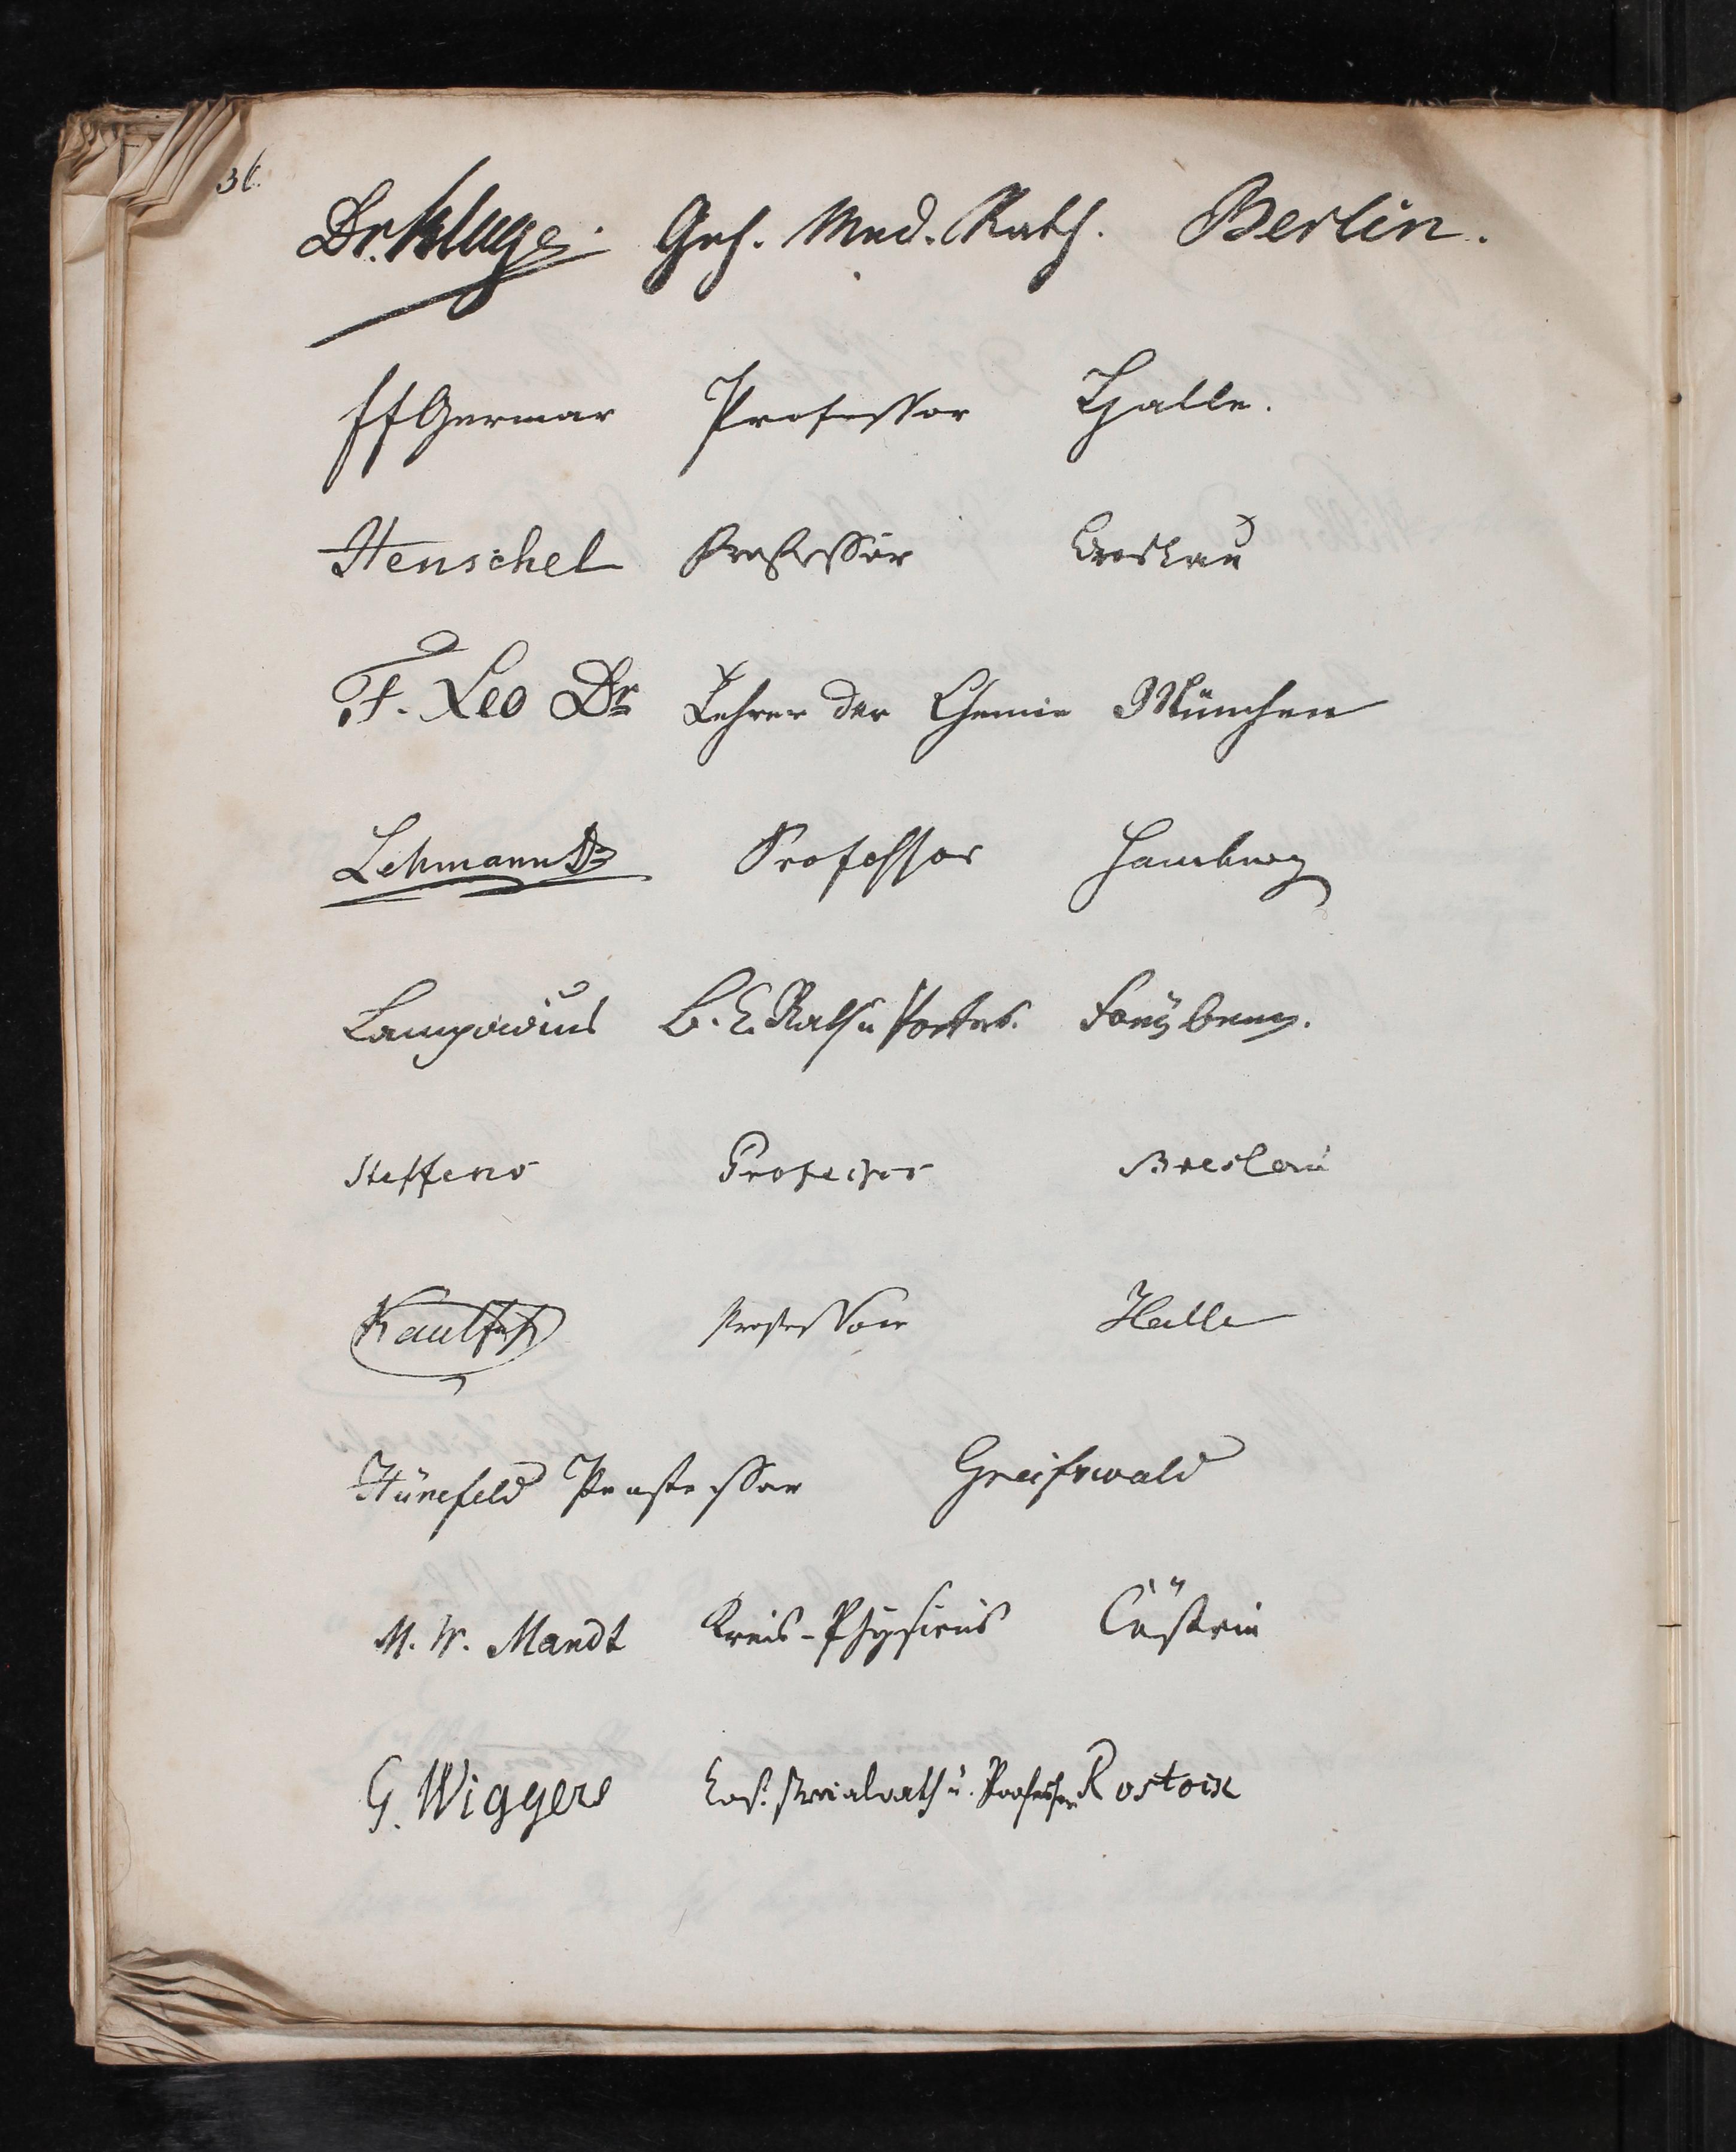 36.
Dr. Kluge. Geh. Med. Rath. Berlin.
EF Germar Professor Halle.
Henschel Professor Breslau
F. Leo Dr Lehrer der Chemie München
Lehmann Dr Professor Hamburg
Lampadius B. C. Rath u Profess. Freyberg.
Steffens Professor Breslau
Kaulfuß Professor Halle
Hünefeld Professor Greifswald
M. W. Mandt Kreis-Physicus Cüstrin
G. Wiggers Consistorialrath u. Professor Rostock